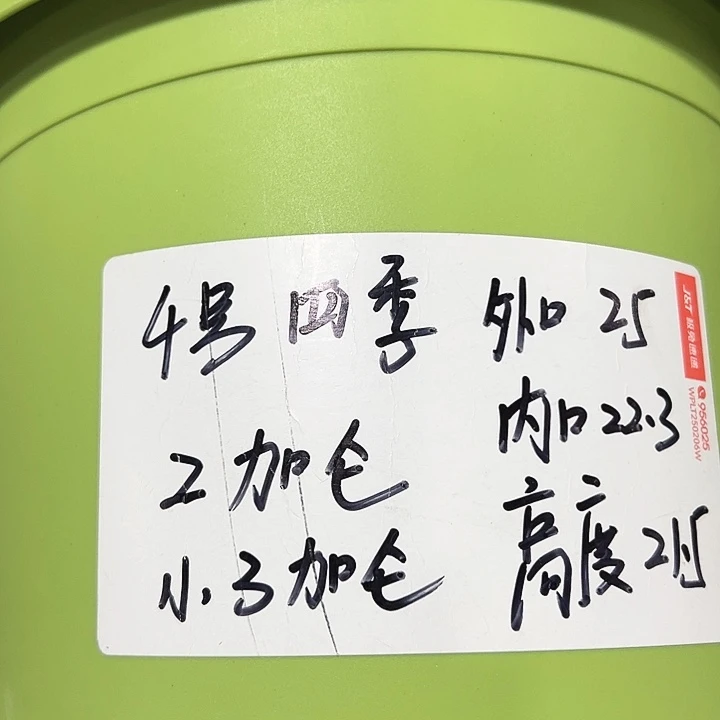 4号 四季
2加仑
小.3加仑
外口 25
内口 22.3
高度 21.5
J&T 极兔速递
956025
WPLT250206W